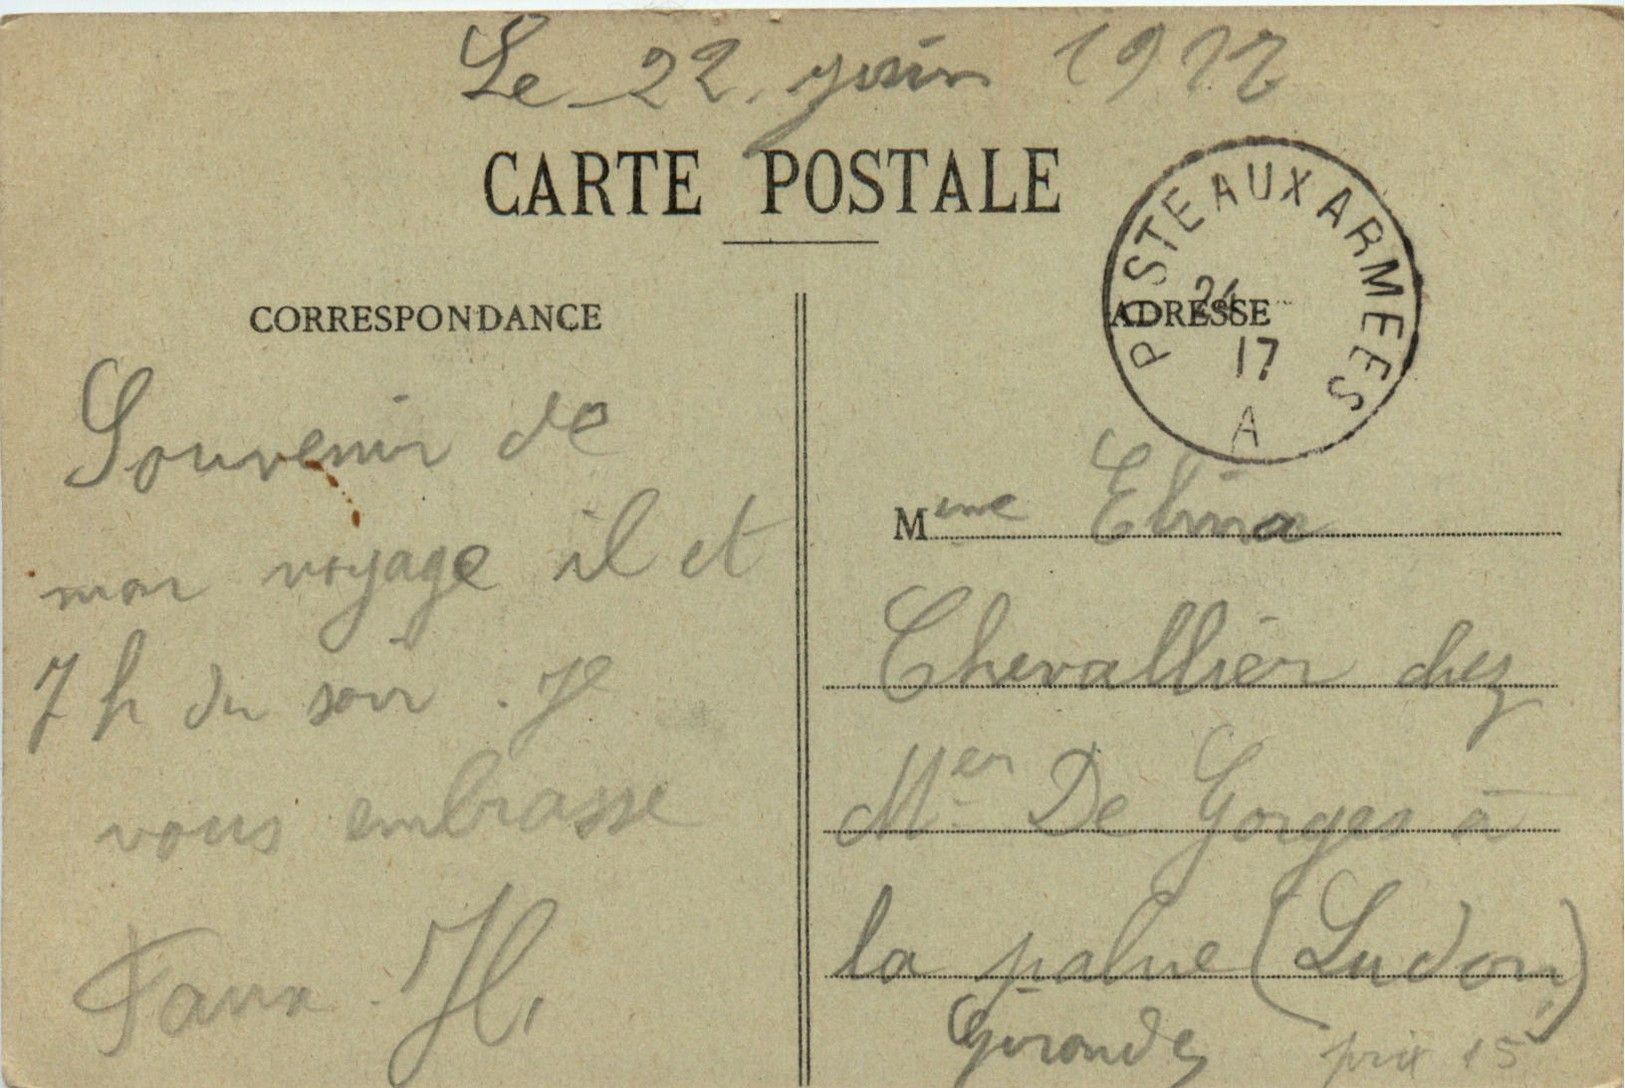 Le 22 juin 1917
CARTE POSTALE
POSTE AUX ARMEES
24
17
A
CORRESPONDANCE
ADRESSE
Souvenir de
mon voyage il et
7 h du soir. Je
vous embrasse
Faux. H,
Mme Elina
Chevallier chez
Mer De Gorges à
la palue (Ludon,)
Gironde, prix 15